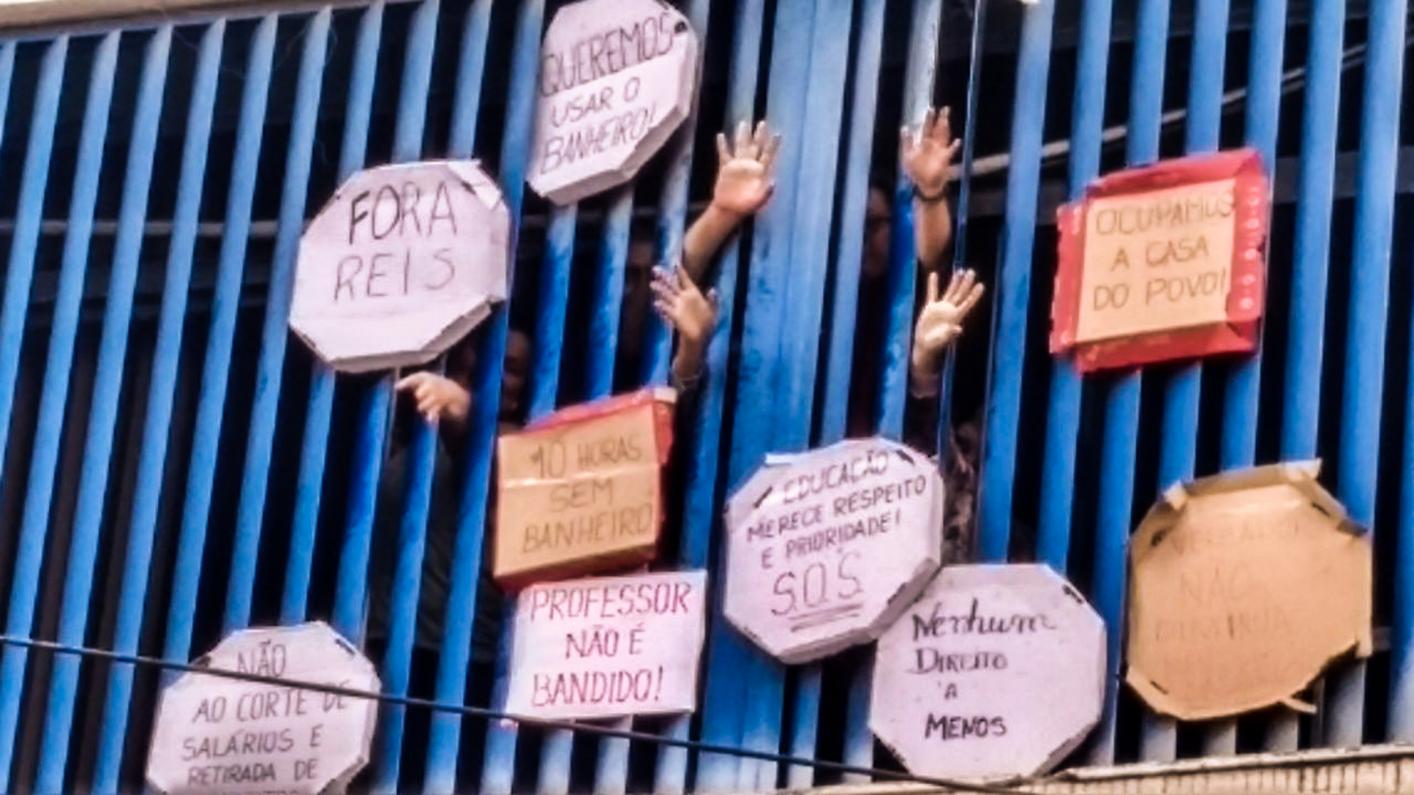 QUEREMOS
USAR O
BANHEIRO!
FORA
REIS
OCUPAMOS
A CASA
DO POVO!
10 HORAS
SEM
BANHEIRO
EDUCAÇÃO
MERECE RESPEITO
E PRIORIDADE!
S.O.S
PROFESSOR
NÃO É
BANDIDO!
Nenhum
DIREITO
A
MENOS
NÃO
NÃO
AO CORTE DE
SALÁRIOS E
RETIRADA DE